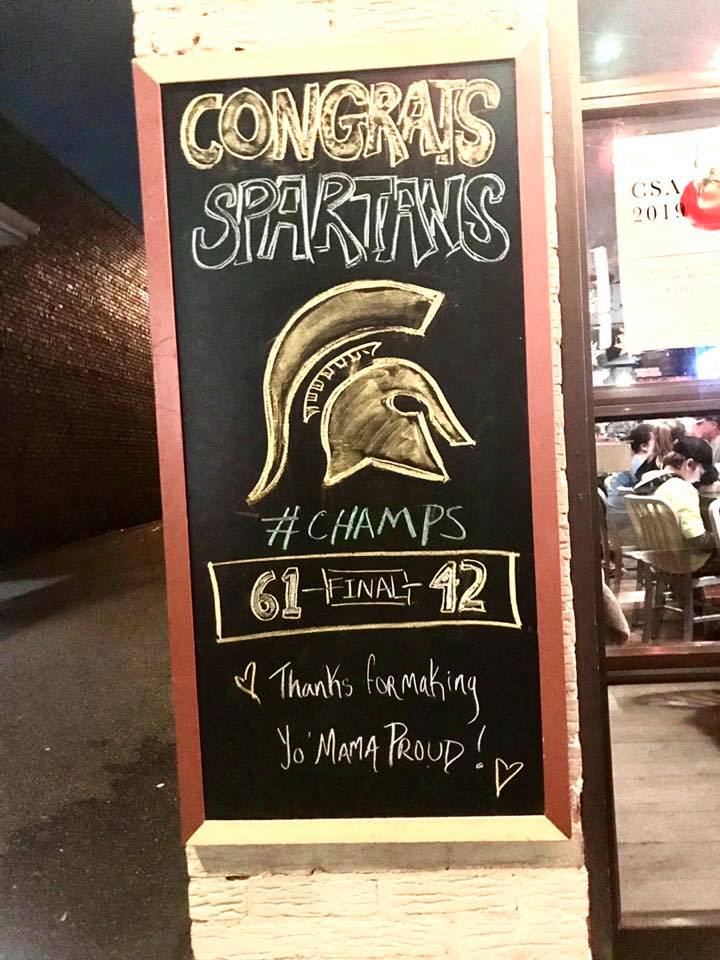 CONGRATS
SPARTANS
#CHAMPS
61-FINAL-42
Thanks for making
Yo' MAMA PROUD!
CSA
2019